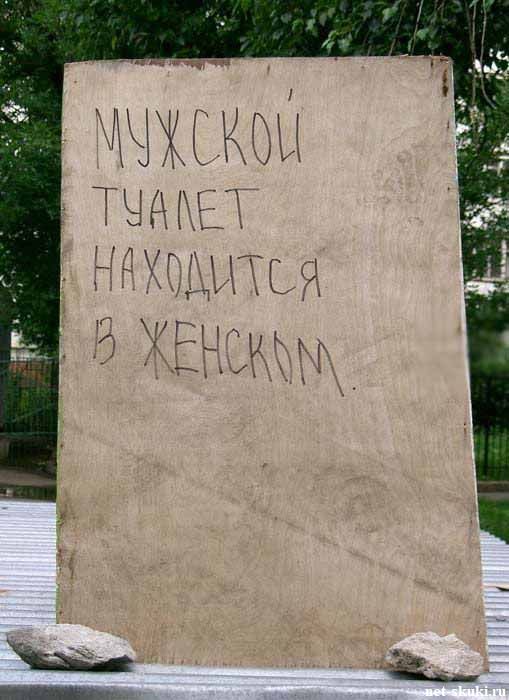 МУЖСКОЙ
ТУАЛЕТ
НАХОДИТСЯ
В ЖЕНСКОМ.
net-skuki.ru